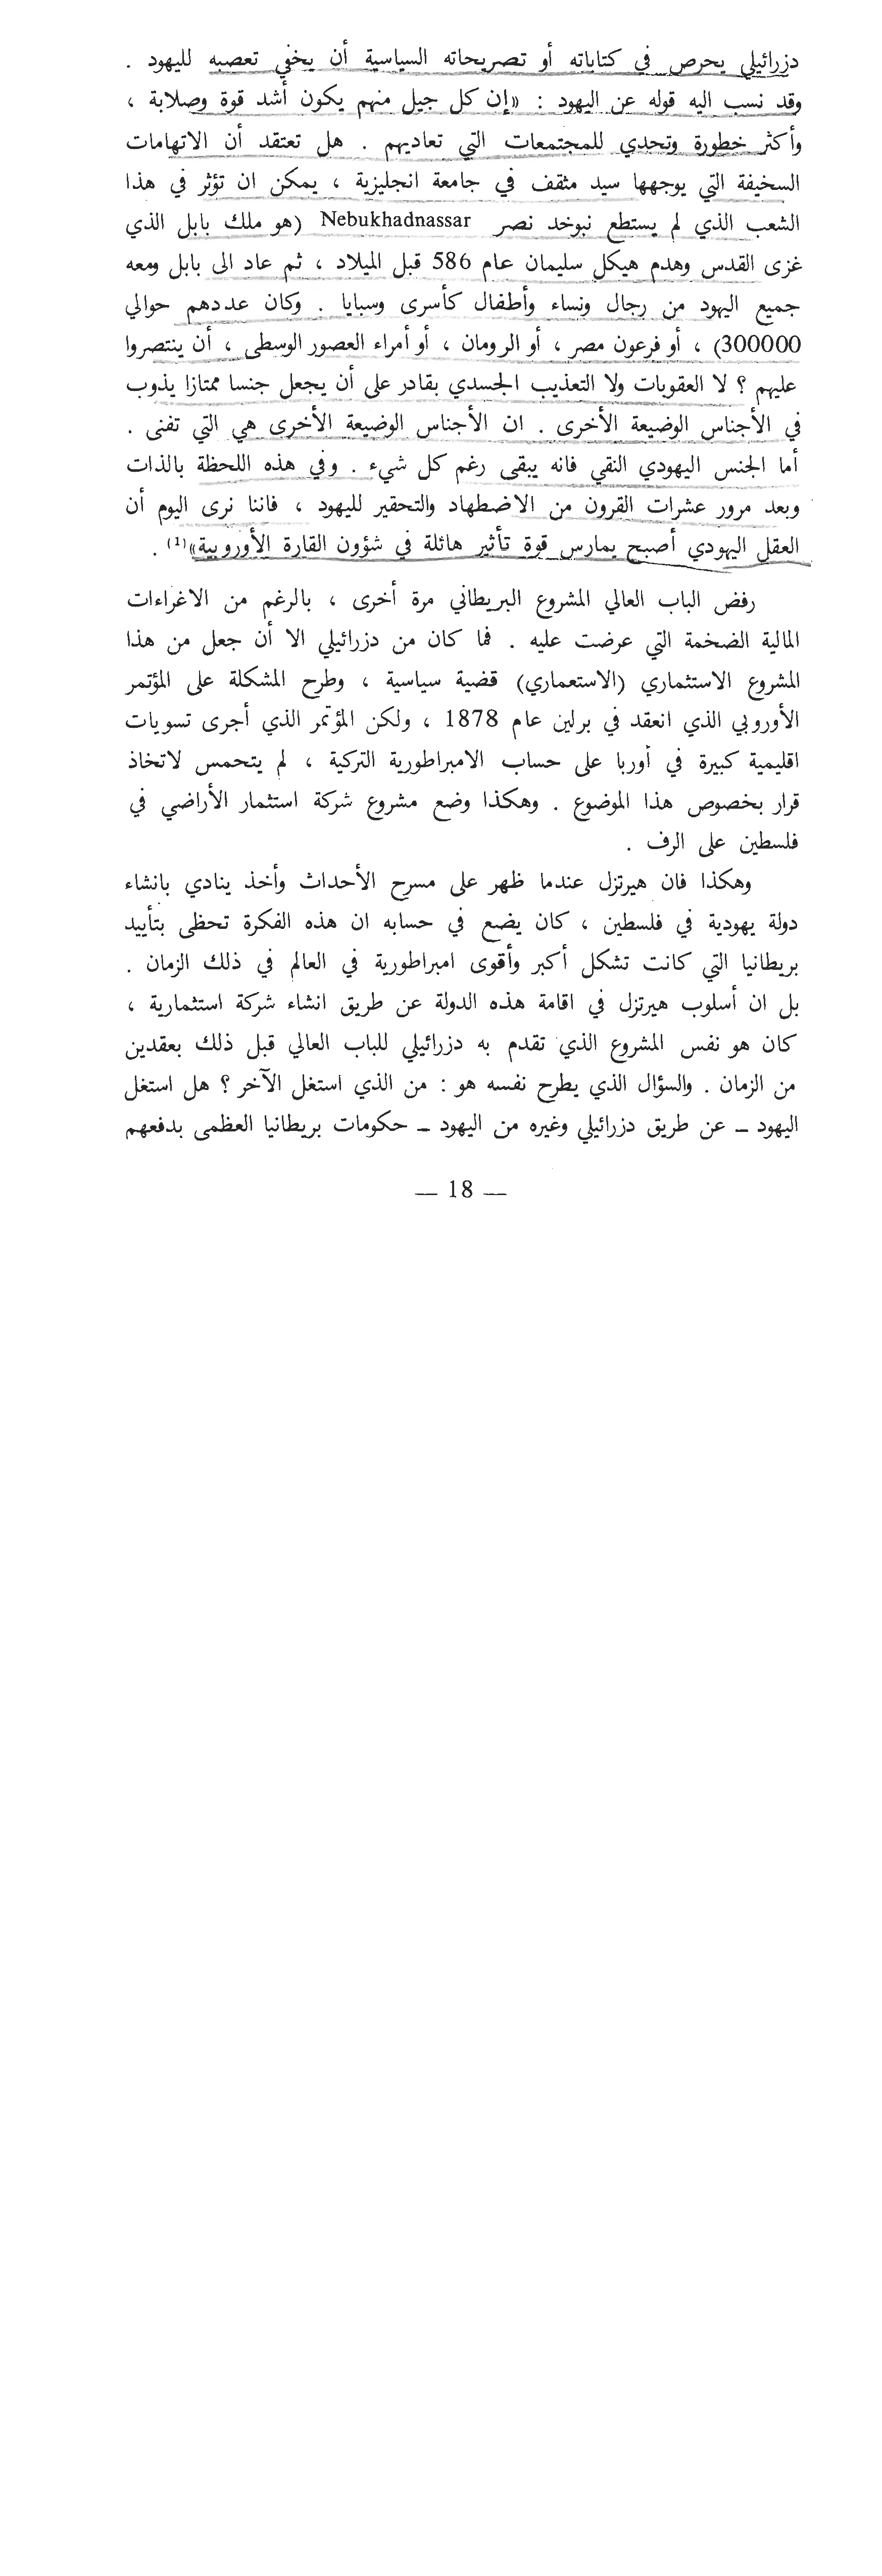 دزرائيلي يحرص في كتاباته أو تصريحاته السياسية أن يخفي تعصبه لليهود .
وقد نسب اليه قوله عن اليهود : «إن كل جيل منهم يكون أشد قوة وصلابة ،
وأكثر خطورة وتحدي للمجتمعات التي تعاديهم . هل تعتقد أن الاتهامات
السخيفة التي يوجهها سيد مثقف في جامعة انجليزية ، يمكن ان تؤثر في هذا
الشعب الذي لم يستطع نبوخد نصر Nebukhadnassar (هو ملك بابل الذي
غزى القدس وهدم هيكل سليمان عام 586 قبل الميلاد ، ثم عاد الى بابل ومعه
جميع اليهود من رجال ونساء وأطفال كأسرى وسبايا . وكان عددهم حوالي
300000) ، أو فرعون مصر ، أو الرومان ، أو أمراء العصور الوسطى ، أن ينتصروا
عليهم ؟ لا العقوبات ولا التعذيب الجسدي بقادر على أن يجعل جنسا ممتازا يذوب
في الأجناس الوضيعة الأخرى . ان الأجناس الوضيعة الأخرى هي التي تفنى .
أما الجنس اليهودي النقي فانه يبقى رغم كل شيء . وفي هذه اللحظة بالذات
وبعد مرور عشرات القرون من الاضطهاد والتحقير لليهود ، فاننا نرى اليوم أن
العقل اليهودي أصبح يمارس قوة تأثير هائلة في شؤون القارة الأوروبية»(1) .
رفض الباب العالي المشروع البريطاني مرة أخرى ، بالرغم من الاغراءات
المالية الضخمة التي عرضت عليه . فما كان من دزرائيلي الا أن جعل من هذا
المشروع الاستثماري (الاستعماري) قضية سياسية ، وطرح المشكلة على المؤتمر
الأوروبي الذي انعقد في برلين عام 1878 ، ولكن المؤتمر الذي أجرى تسويات
اقليمية كبيرة في أوربا على حساب الامبراطورية التركية ، لم يتحمس لاتخاذ
قرار بخصوص هذا الموضوع . وهكذا وضع مشروع شركة استثمار الأراضي في
فلسطين على الرف .
وهكذا فان هيرتزل عندما ظهر على مسرح الأحداث وأخذ ينادي بانشاء
دولة يهودية في فلسطين ، كان يضع في حسابه ان هذه الفكرة تحظى بتأييد
بريطانيا التي كانت تشكل أكبر وأقوى امبراطورية في العالم في ذلك الزمان .
بل ان أسلوب هيرتزل في اقامة هذه الدولة عن طريق انشاء شركة استثمارية ،
كان هو نفس المشروع الذي تقدم به دزرائيلي للباب العالي قبل ذلك بعقدين
من الزمان . والسؤال الذي يطرح نفسه هو : من الذي استغل الآخر ؟ هل استغل
اليهود ــ عن طريق دزرائيلي وغيره من اليهود ــ حكومات بريطانيا العظمى بدفعهم
— 18 —